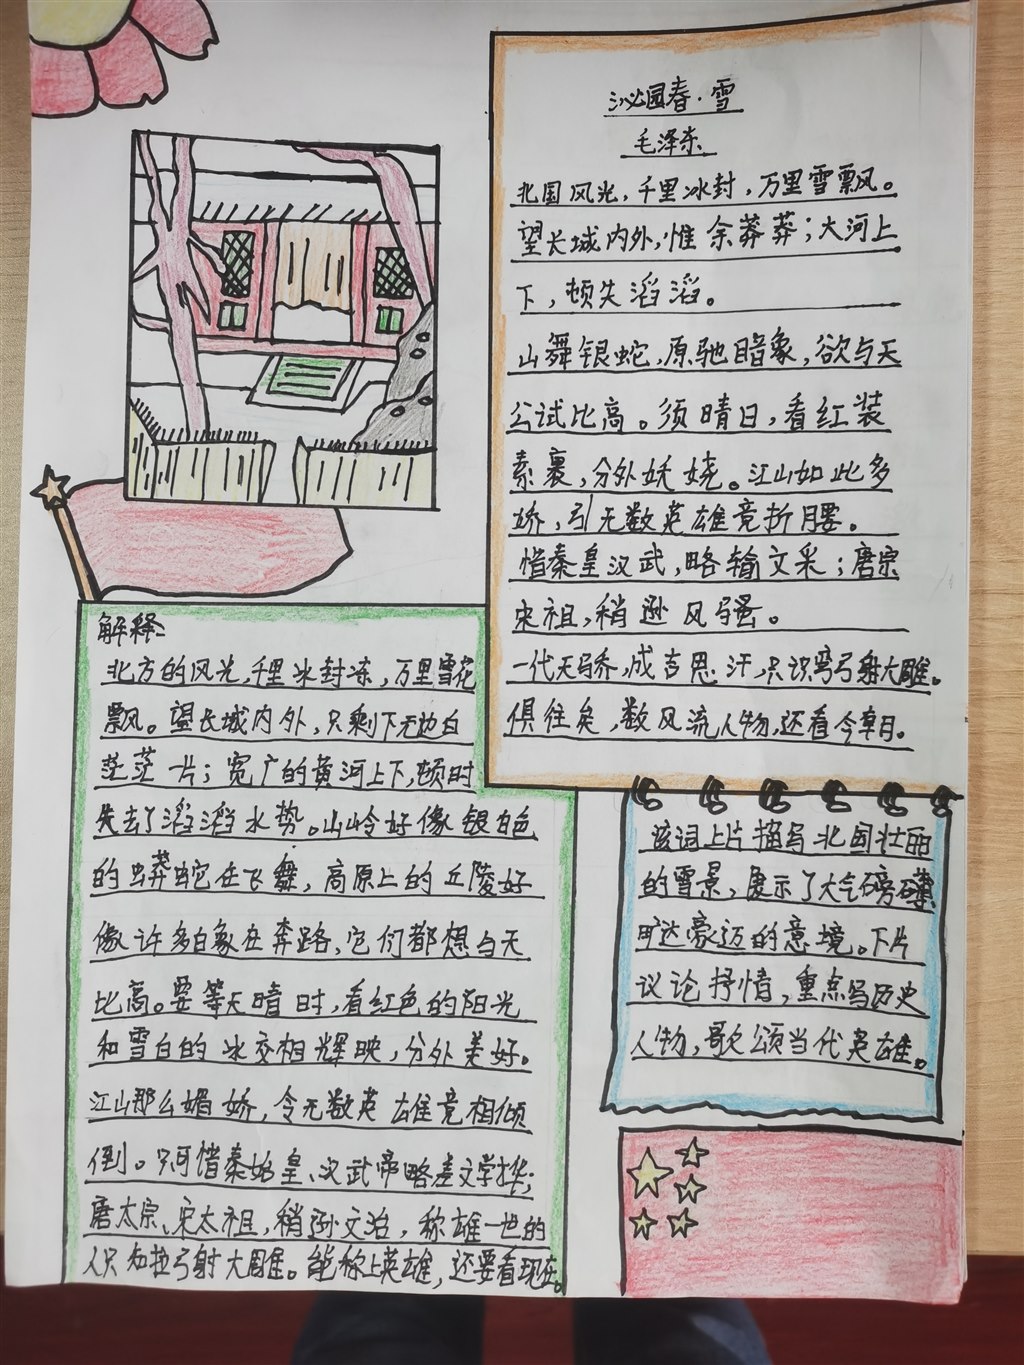 沁园春·雪
毛泽东
北国风光，千里冰封，万里雪飘。
望长城内外，惟余莽莽；大河上
下，顿失滔滔。
山舞银蛇，原驰蜡象，欲与天
公试比高。须晴日，看红装
素裹，分外妖娆。江山如此多
娇，引无数英雄竞折腰。
惜秦皇汉武，略输文采；唐宗
宋祖，稍逊风骚。
一代天骄，成吉思汗，只识弯弓射大雕。
俱往矣，数风流人物，还看今朝。
解释：
北方的风光，千里冰封冻，万里雪花
飘。望长城内外，只剩下无边白
茫茫一片；宽广的黄河上下，顿时
失去了滔滔水势。山岭好像银白色
的蟒蛇在飞舞，高原上的丘陵好
像许多白象在奔跑，它们都想与天
比高。要等天晴时，看红色的阳光
和雪白的冰交相辉映，分外美好。
江山那么媚娇，令无数英雄竞相倾
倒。只可惜秦始皇、汉武帝略差文学才华；
唐太宗、宋太祖，稍逊文治，称雄一世的
人只知拉弓射大雕。能称上英雄，还要看现在。
该词上片描写北国壮丽
的雪景，展示了大气磅礴
旷达豪迈的意境。下片
议论抒情，重点写历史
人物，歌颂当代英雄。